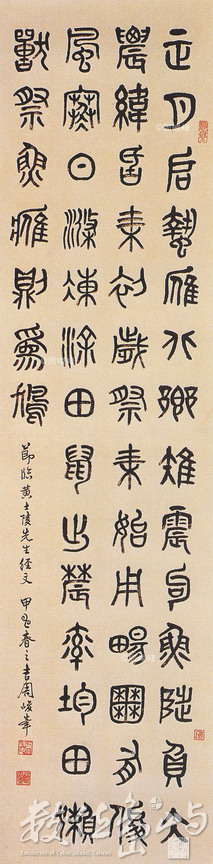 正月启蟄雁北鄉雉震呴魚陟負仌
農緯厥耒初歲祭耒始用暢囿有俊
風寒日滌凍涂田鼠出農率均田獺
獸祭魚鷹則為鳩
節臨黃士陵先生經文 甲春之吉周峻峯